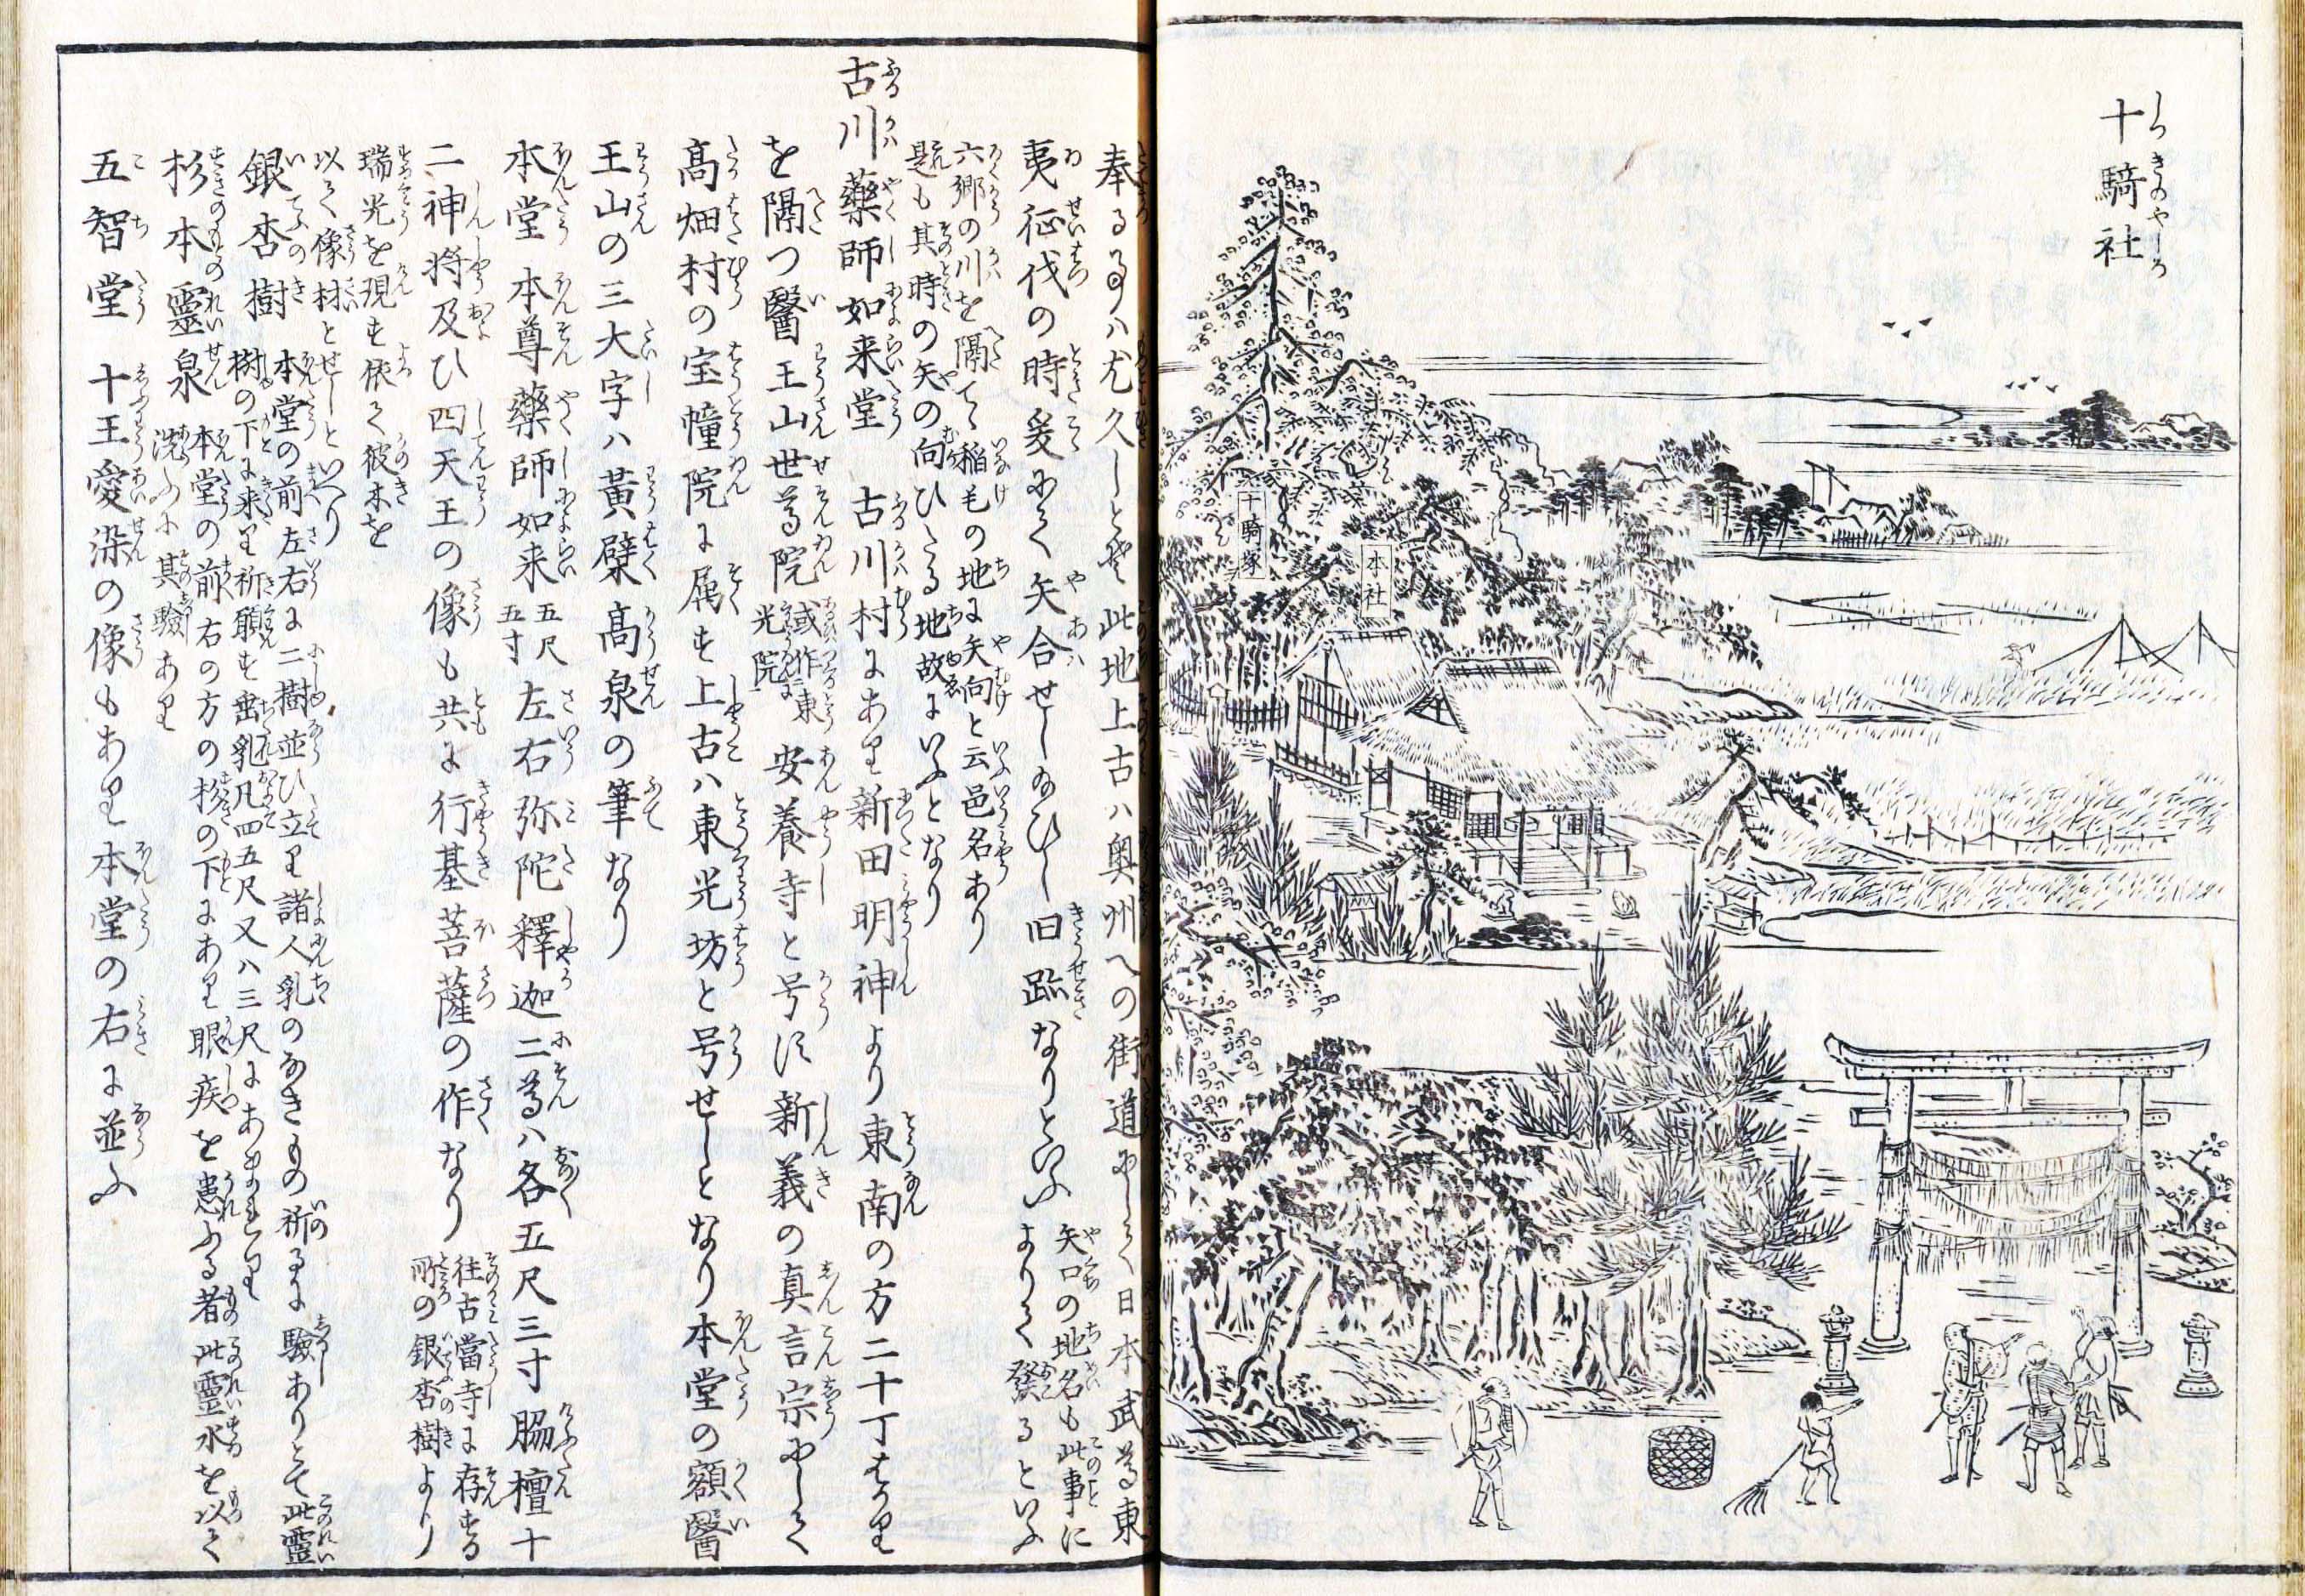 十騎社
十騎塚
本社
奉る事ハ尤久しとそ此地上古ハ奥州への街道にして日本武尊東
夷征伐の時爰にて矢合せし給ひし旧跡なりといふ
矢口の地名も此事に
よりて発るといふ
六郷の川を隔て稲毛の地に矢向と云邑名あり
是も其時の矢の向ひたる地故にいふとなり
古川薬師如来堂 古川村にあり新田明神より東南の方二十丁はかり
を隔つ醫王山世尊院
或作東
光院
安養寺と号に新義の真言宗にして
高畑村の宝幢院に属す上古ハ東光坊と号せしとなり本堂の額醫
王山の三大字ハ黄檗高泉の筆なり
本堂 本尊薬師如来
五尺
五寸
左右弥陀釋迦二尊ハ各五尺三寸脇檀十
二神将及ひ四天王の像も共に行基菩薩の作なり
往古當寺に存する
所の銀杏樹より
瑞光を現す依て彼木を
以て像材とせしといへり
銀杏樹
本堂の前左右に二樹並ひ立り諸人乳のなきもの祈るに験ありとて此霊
樹の下に来り祈願す垂乳凡四五尺又ハ三尺にあまれり
杉本靈泉
本堂の前右の方の杉の下にあり眼疾を患ふる者此靈水を以て
洗ふに其験あり
五智堂 十王愛染の像もあり本堂の右に並ふ